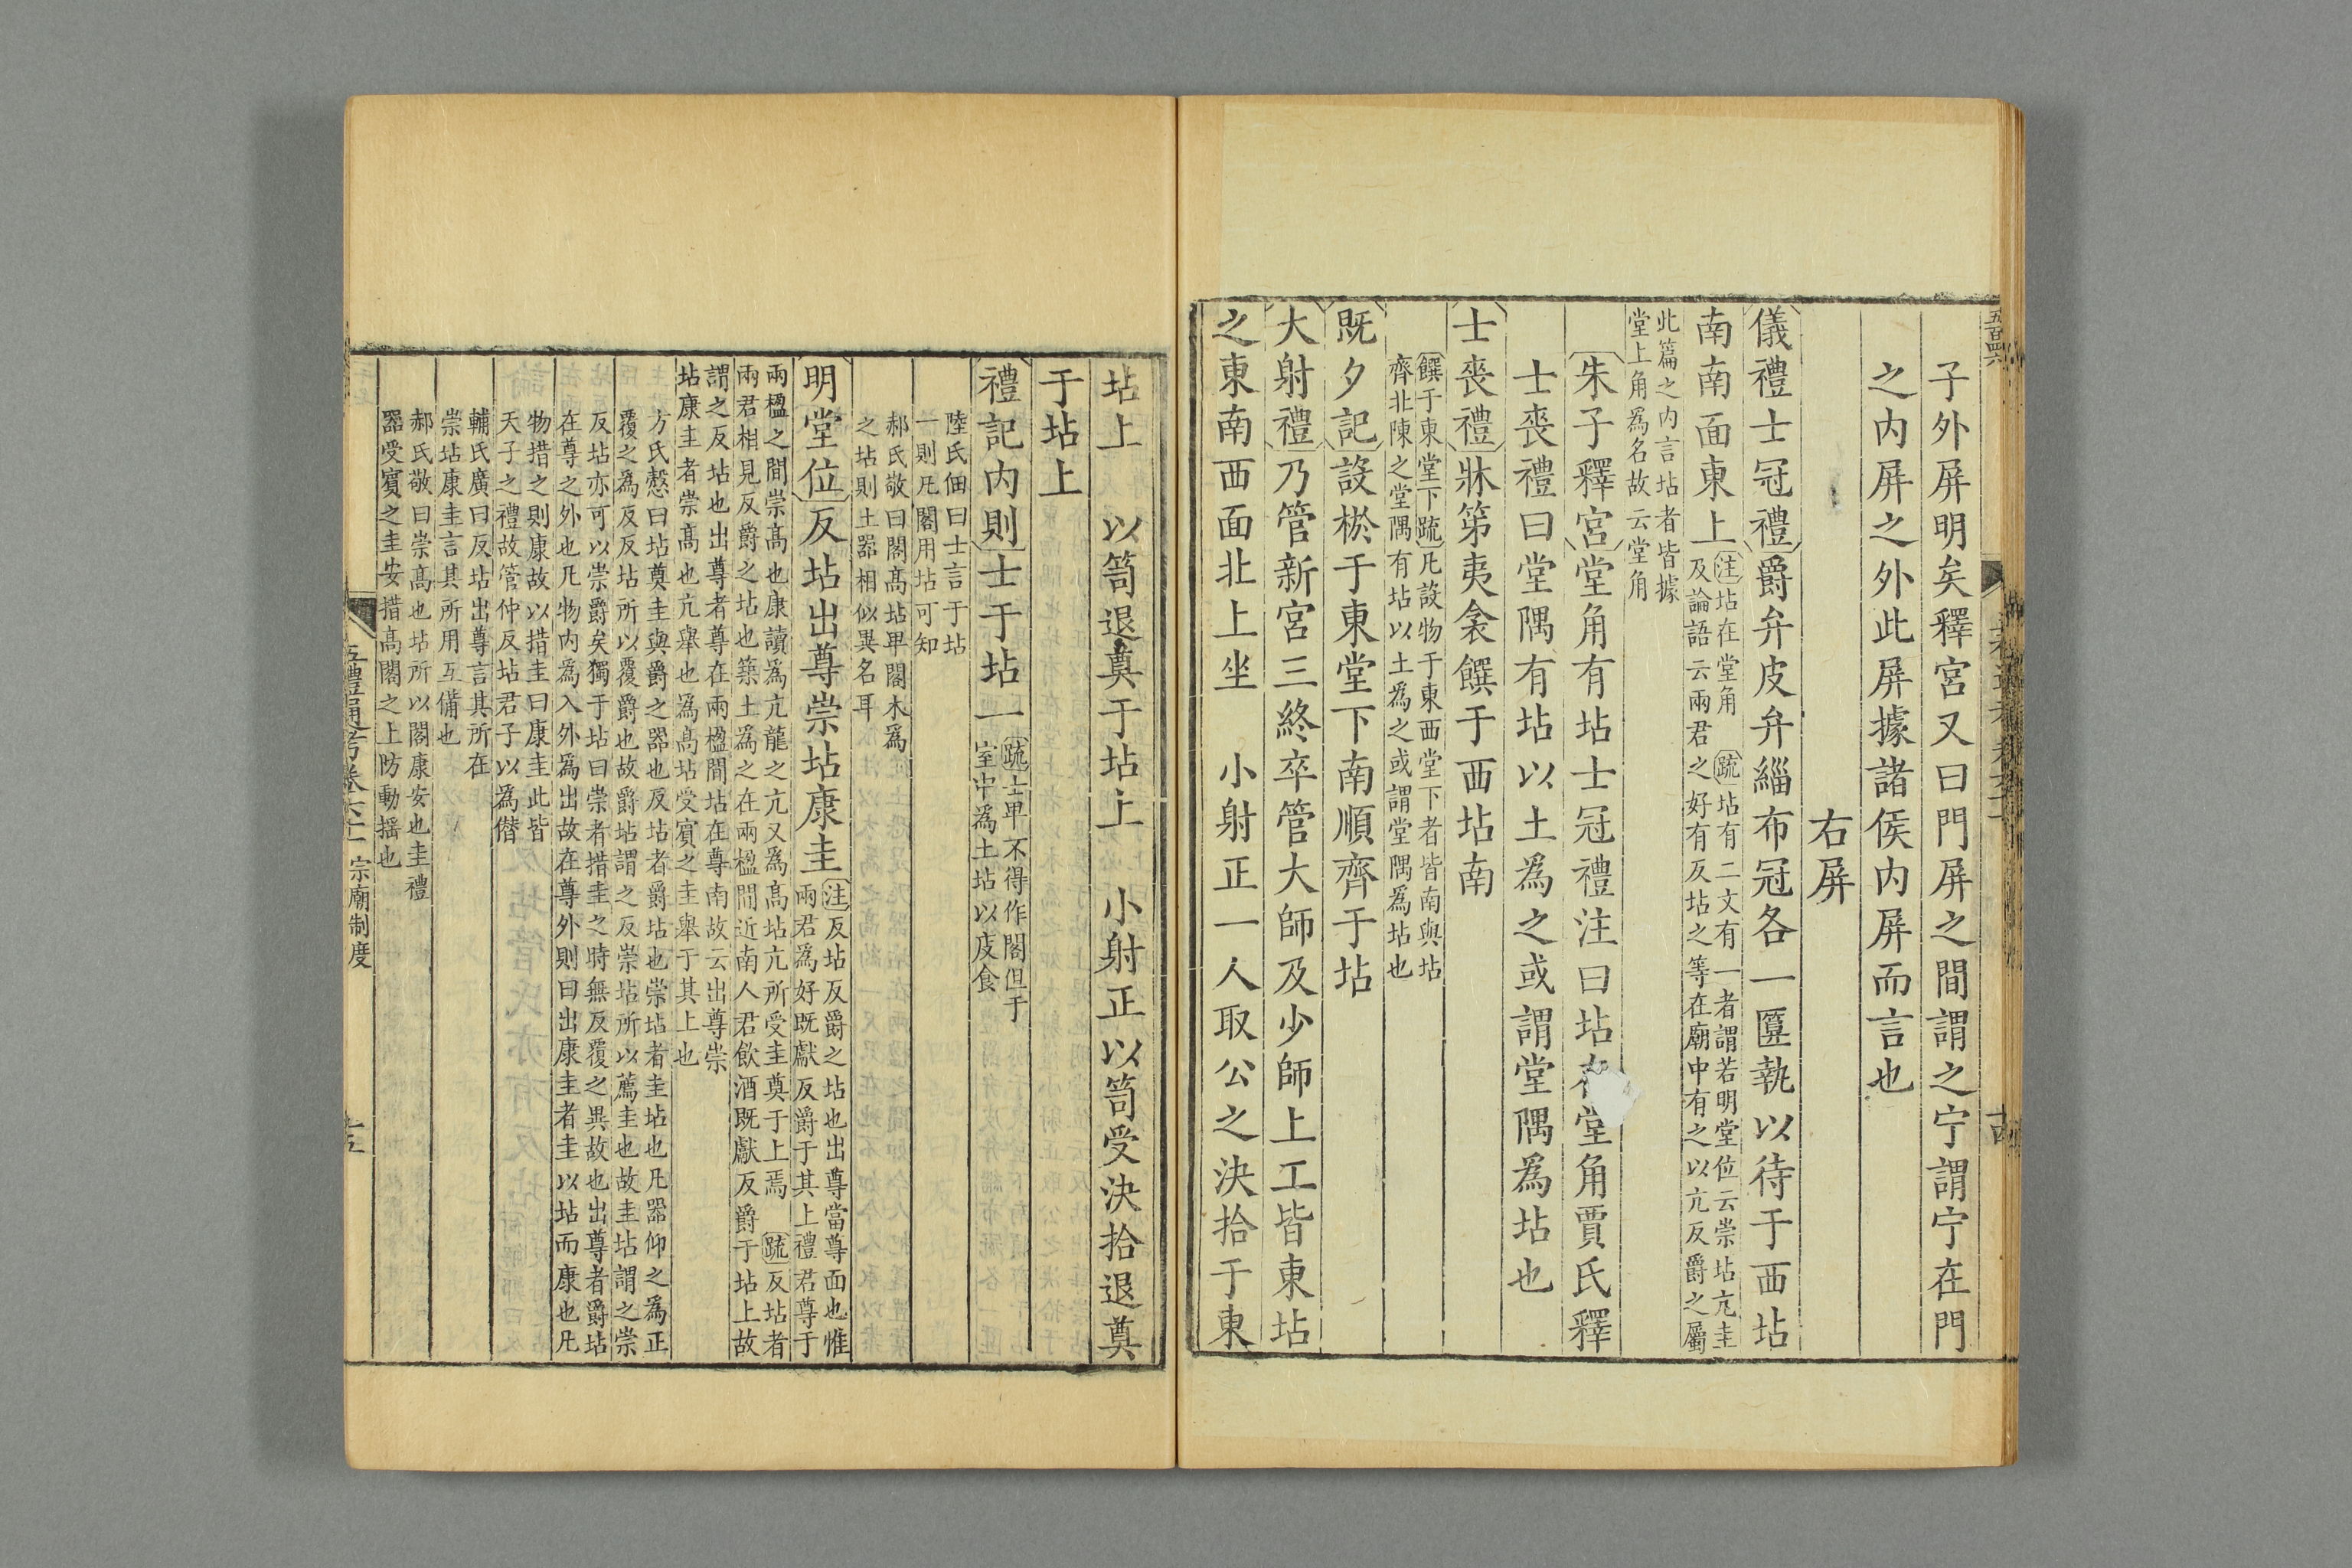 子外屏明矣釋宮又曰門屏之間謂之宁謂宁在門
之内屏之外此屏據諸侯内屏而言也
右屏
儀禮士冠禮爵弁皮弁緇布冠各一匴執以待于西坫
南南面東上注坫在堂角 疏坫有二文有一者謂若明堂位云崇坫亢圭
及論語云兩君之好有反坫之等在廟中有之以亢反爵之屬
此篇之内言坫者皆據
堂上角為名故云堂角
朱子釋宮堂角有坫士冠禮注曰坫在堂角賈氏釋
士喪禮曰堂隅有坫以土為之或謂堂隅為坫也
士喪禮牀第夷衾饌于西坫南
饌于東堂下疏凡設物于東西堂下者皆南與坫
齊北陳之堂隅有坫以土為之或謂堂隅為坫也
既夕記設棜于東堂下南順齊于坫
大射禮乃管新宮三終卒管大師及少師上工皆東坫
之東南西面北上坐 小射正一人取公之決拾于東
坫上 以笥退奠于坫上 小射正以笥受決拾退奠
于坫上
禮記内則士于坫一疏士卑不得作閣但于
室中為土坫以庋食
陸氏佃曰士言于坫
一則凡閣用坫可知
郝氏敬曰閣高坫卑閣木為
之坫則土器相似異名耳
明堂位反坫出尊崇坫康圭注反坫反爵之坫也出尊當尊面也惟
兩君為好既獻反爵于其上禮君尊于
兩楹之間崇高也康讀為亢龍之亢又為高坫亢所受圭奠于上焉 疏反坫者
兩君相見反爵之坫也築土為之在兩楹間近南人君飲酒既獻反爵于坫上故
謂之反坫也出尊者尊在兩楹間坫在尊南故云出尊崇
坫康圭者崇高也亢舉也為高坫受賓之圭舉于其上也
方氏慤曰坫奠圭與爵之器也反坫者爵坫也崇坫者圭坫也凡器仰之為正
覆之為反反坫所以覆爵也故爵坫謂之反崇坫所以薦圭也故圭坫謂之崇
反坫亦可以崇爵矣獨于坫曰崇者措圭之時無反覆之異故也出尊者爵坫
在尊之外也凡物内為入外為出故在尊外則曰出康圭者圭以坫而康也凡
物措之則康故以措圭曰康圭此皆
天子之禮故管仲反坫君子以為僭
輔氏廣曰反坫出尊言其所在
崇坫康圭言其所用互備也
郝氏敬曰崇高也坫所以閣康安也圭禮
器受賓之圭安措高閣之上防動搖也
五禮通考卷六十一 宗廟制度
十五